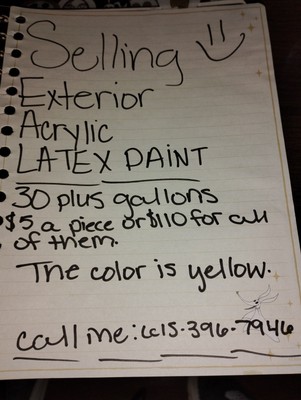 Selling
Exterior
Acrylic
LATEX PAINT
30 plus gallons
$5 a piece or $110 for all
of them.
The color is yellow.
call me: 615-396-7946